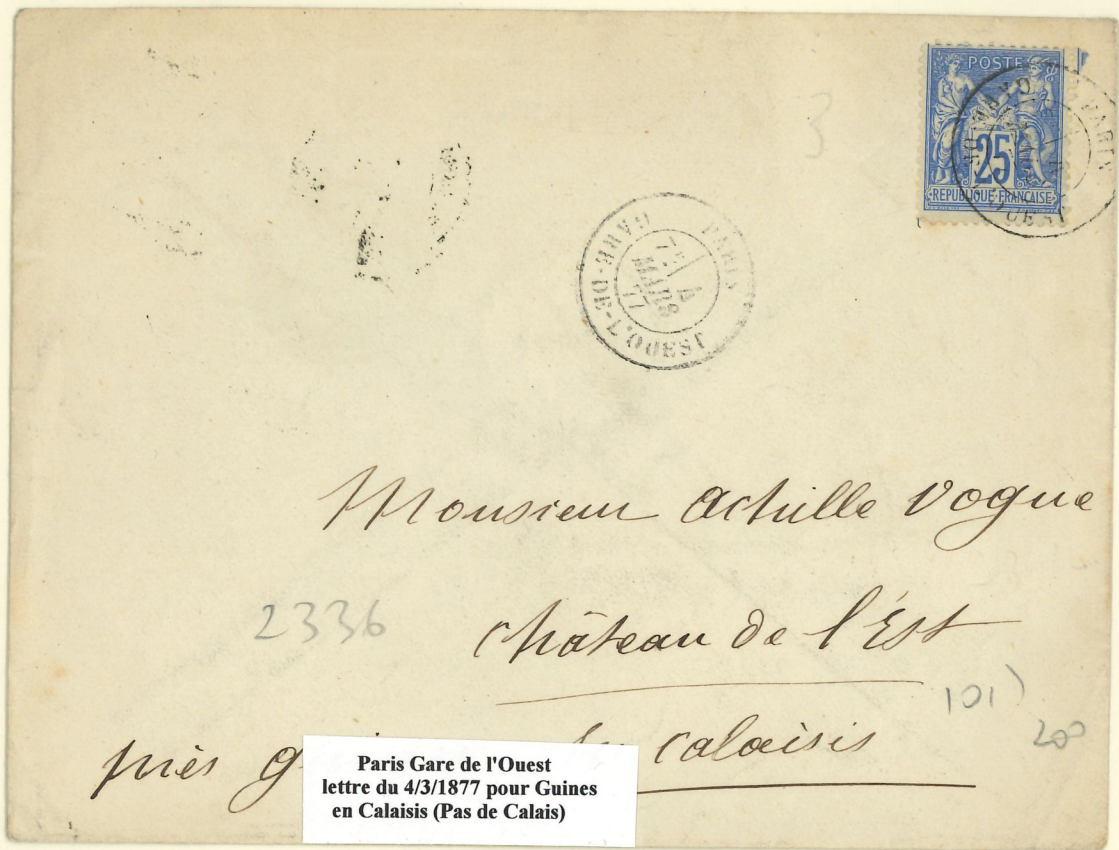 POSTE
25
REPUBLIQUE FRANÇAISE
PARIS
3
PARIS
7E 4
MARS
77
GARE-DE-L'OUEST
Monsieur Achille Vogue
2336
château de l'Est
101)
près calaisis
200
Paris Gare de l'Ouest
lettre du 4/3/1877 pour Guines
en Calaisis (Pas de Calais)